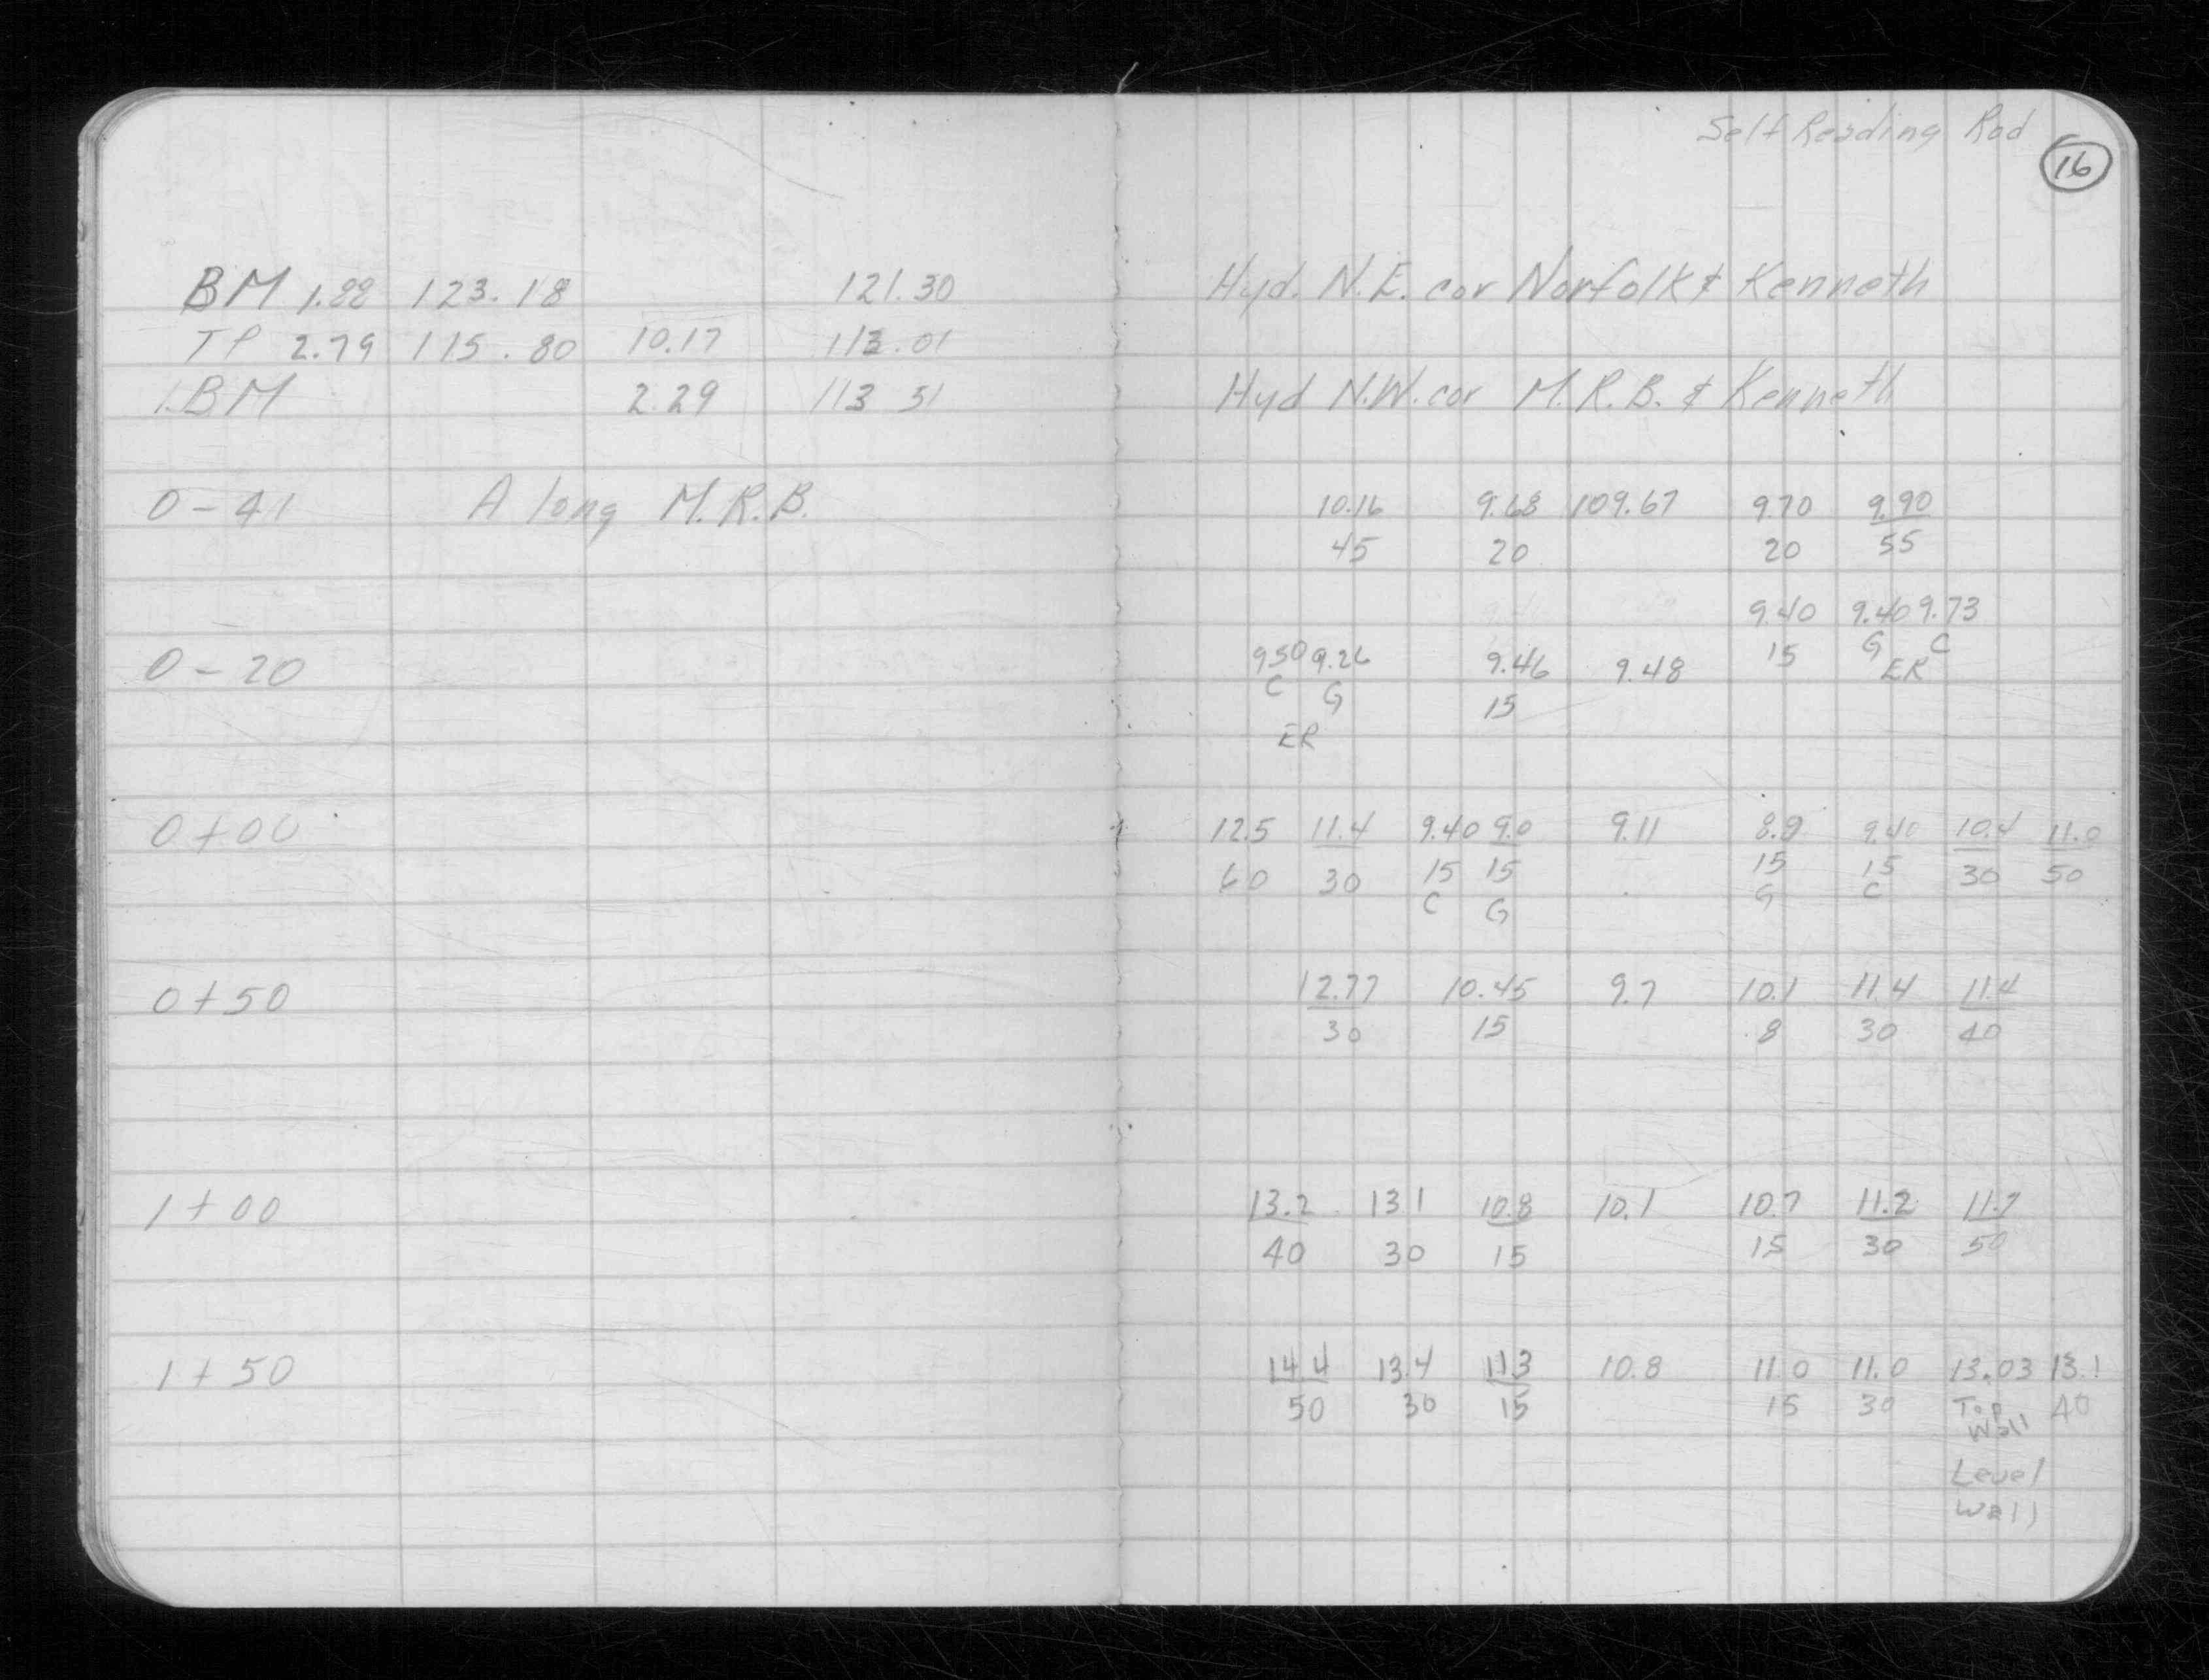 Self Reading Rod
16
BM 1.88 123.18 121.30 Hyd. N.E. cor Norfolk & Kenneth
TP 2.79 115.80 10.17 113.01
BM 2.29 113 51 Hyd N.W. cor M.R.B. & Kenneth
0-41 Along M.R.B. 10.16 9.68 109.67 9.70 9.90
45 20 20 55
9.40 9.40 9.73
15 G C
ER
0-20 9.50 9.26 9.46 9.48
C G 15
ER
0+00 12.5 11.4 9.40 9.0 9.11 8.9 9.40 10.4 11.0
60 30 15 15 15 15 30 50
C G G C
0+50 12.77 10.45 9.7 10.1 11.4 11.4
30 15 8 30 40
1+00 13.2 13 1 10.8 10.1 10.7 11.2 11.7
40 30 15 15 30 50
1+50 14.4 13.4 11.3 10.8 11.0 11.0 13.03 13.1
50 30 15 15 30 Top 40
Wall
Level
Wall